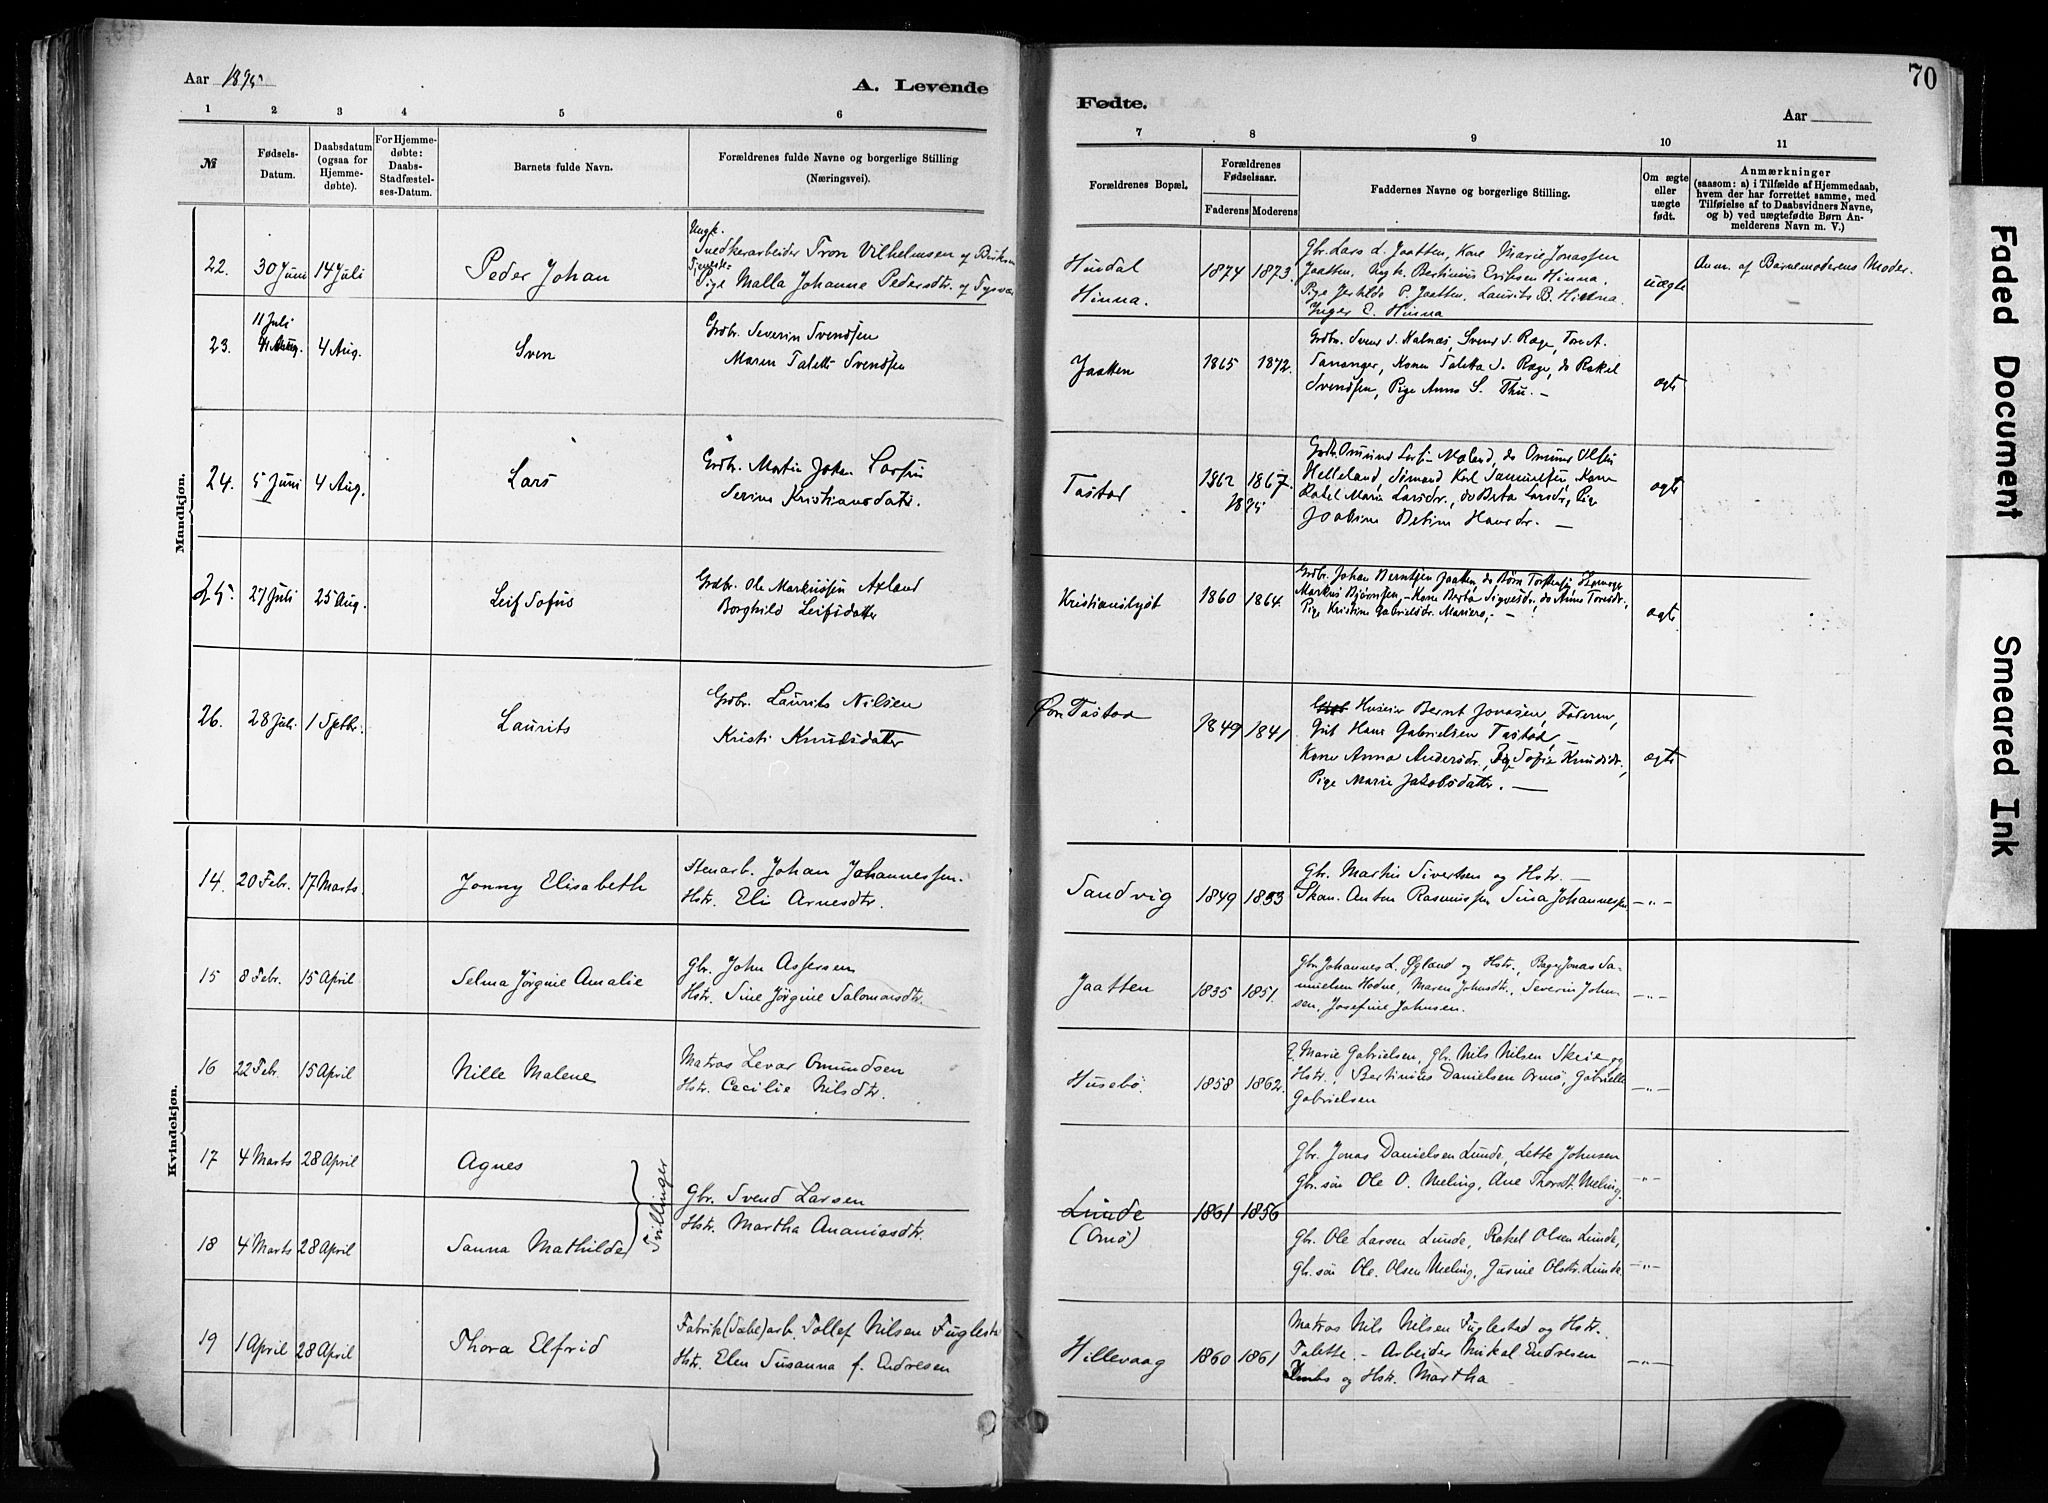 Aar 1895
A. Levende
Fødte.
Aar
70
1 2 3 4 5 6 7 8 9 10 11
№
Fødsels-
Datum.
Daabsdatum
(ogsaa for
Hjemme-
døbte).
For Hjemme-
døbte:
Daabs-
Stadfæstel-
ses-Datum.
Barnets fulde Navn.
Forældrenes fulde Navne og borgerlige Stilling
(Næringsvei).
Forældrenes Bopæl.
Forældrenes
Fødselsaar.
Faderens Moderens
Faddernes Navne og borgerlige Stilling.
Om ægte
eller
uægte
født.
Anmærkninger
(saasom: a) i Tilfælde af Hjemmedaab,
hvem der har forrettet samme, med
Tilføielse af to Daabsvidners Navne,
og b) ved uægtefødte Børn An-
melderens Navn m. V.)
Mandkjøn.
22. 30 Juni 14 Juli
Peder Johan
Ungk.
Snedkerarbeider Tron Vilhelmsen af
Pige Malla Johanne Pedersdtr. af Tysvær
Hindal
Hinna.
1874 1873
Gbr. Lars L. Jaatten, Kone Marie Jonassen
Jaatten, Ungk. Bertinius Eriksen Hinna,
Pige P. Jaatten, Laurits B. Hinna.
Inger E. Hinna
uægte
Anm. af Barnemoderens Moder.
11 Juli
23. 4 Aug. 4 Aug.
Sven
Grdbr. Severin Svendsen
Maren Talette Svendsen
Jaatten
1865 1872.
Grdbr. Svend S. Halnæs, Svend S. Rege, Tore A.
Tananger, Konen Taletta S. Rege, do Rakel
Svendsen, Pige Anna S. Thu. –
ægte
24. 5 Juni 4 Aug.
Lars
Grdbr. Martin Johan Larsen
Serine Kristiansdatr.
Tastad
1862 1867.
1895
Grdbr. Omund Larsen Moland, do Omund Olsen
Helleland, Sømand Karl Samuelsen, Kone
Rakel Marie Larsdr., do Berta Larsdr, Pige
Joakine Betine Hansdr. –
ægte
25. 27 Juli 25 Aug.
Leif Tofus
Grdbr. Ole Markussen Axland
Borghild Leifsdatter
Kristianslyst
1860 1864.
Grdbr. Johan Berntsen Jaatten, do Børn Torstensen
Markus Bjørnsen, – Kone Berta Sigvesdr, do Anne Toresdr,
Pige Kristine Gabrielsdr. Mariero, –
ægte
26. 28 Juli 1 Septbr.
Laurits
Grdbr. Laurits Nilsen
Kristi Knudsdatter
Øvr. Tastad
1849 1841
Huseier Bernt Jonasen, Faderen,
Gut Hans Gabrielsen Tastad, –
Kone Anna Andersdr., Pige Sofie Knudsdr.,
Pige Marie Jakobsdatter. –
ægte
Kvindekjøn.
14. 20 Febr. 17 Marts
Jonny Elisabeth
Stenarb. Johan Johannessen.
Hstr. Eli Arnesdtr.
Sandvig
1849 1853
Gbr. Martin Sivertsen og Hstr. –
Skom. Anton Rasmussen Sina Johannessen
–„–
15 8 Febr. 15 April
Selma Jörgine Amalie
Gbr. John Assersen
Hstr. Sine Jörgine Salomonsdtr.
Jaatten
1835 1851.
Gbr. Johannes L. Øgland og Hstr., Bager Jonas Sa-
muelsen Hodne, Maren Johnsdtr., Severin John-
sen, Josefine Johnsen.
–„–
16 22 Febr. 15 April
Nille Malene
Matros Levar Omundsen
Hstr. Cecilie Nilsdtr.
Husebö
1858 1862.
Marie Gabrielsen, Gbr. Nils Nilsen Skeie og
Hstr., Bertinius Danielsen Ormö, Gabrielle
Gabrielsen
–„–
17 4 Marts 28 April
Agnes
Tvillinger
Gbr. Svend Larsen
Hstr. Martha Ananiasdtr.
Lunde
(Omö)
1861 1856
Gbr. Jonas Danielsen Lunde, Lette Johnsen
Gbr. sön Ole O. Meling, Ane Thorsdt. Meling.
–„–
18 4 Marts 28 April
Sanna Mathilde
Gbr. Ole Larsen Lunde, Rakel Olsen Lunde,
Gbr. sön Ole Olsen Meling, Gurine Olsdtr. Lunde
–„–
19 1 April 28 April
Thora Elfrid
Fabrik (Sæbe) arb. Tollef Nilsen Fuglesta
Hstr. Elen Susanna f. Endresen
Hillevaag
1860 1861
Matros Nils Nilsen Fuglestad og Hstr.
Talette. – Arbeider Mikal Endresen
og Hstr. Martha
–„–
Faded Document
Smeared Ink